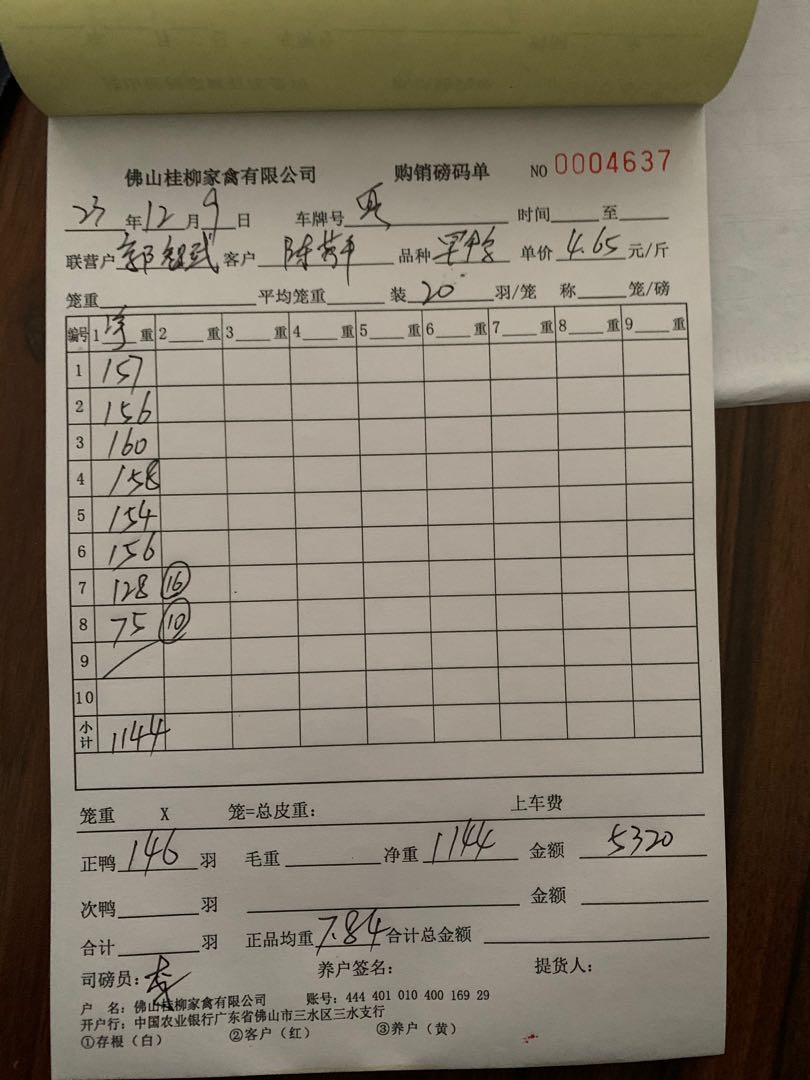 佛山桂柳家禽有限公司 购销磅码单 NO 0004637
23年12月9日 车牌号 时间 至
联营户 郭 武 客户 陈 平 品种 单价 4.65 元/斤
笼重 平均笼重 装 20 羽/笼 称 笼/磅
编号 1 净 重 2 重 3 重 4 重 5 重 6 重 7 重 8 重 9 重
1 157
2 156
3 160
4 158
5 154
6 156
7 128 16
8 75 10
9
10
小计 1144
笼重 X 笼=总皮重: 上车费
正鸭 146 羽 毛重 净重 1144 金额 5320
次鸭 羽 金额
合计 羽 正品均重 7.84 合计总金额
司磅员: 李 养户签名: 提货人:
户 名: 佛山桂柳家禽有限公司 账号: 444 401 010 400 169 29
开户行: 中国农业银行广东省佛山市三水区三水支行
①存根(白) ②客户(红) ③养户(黄)